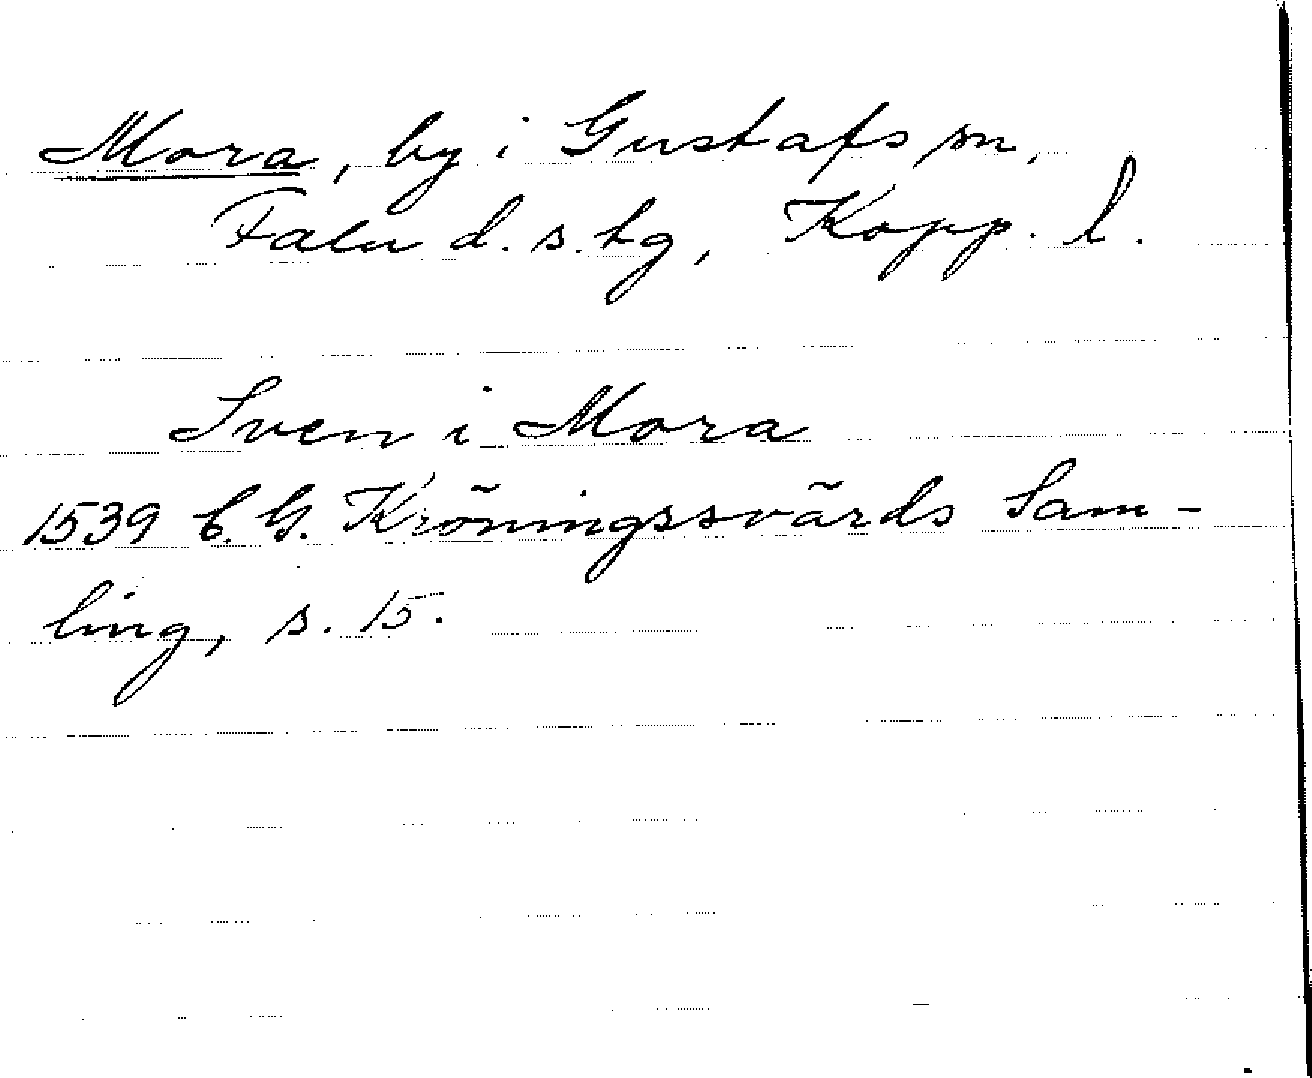 Mora, by i Gustafs sn,
Falu d. s. hg, Kopp. l.
Sven i Mora
1539 C. G. Kröningssvärds Sam-
ling, s. 15.